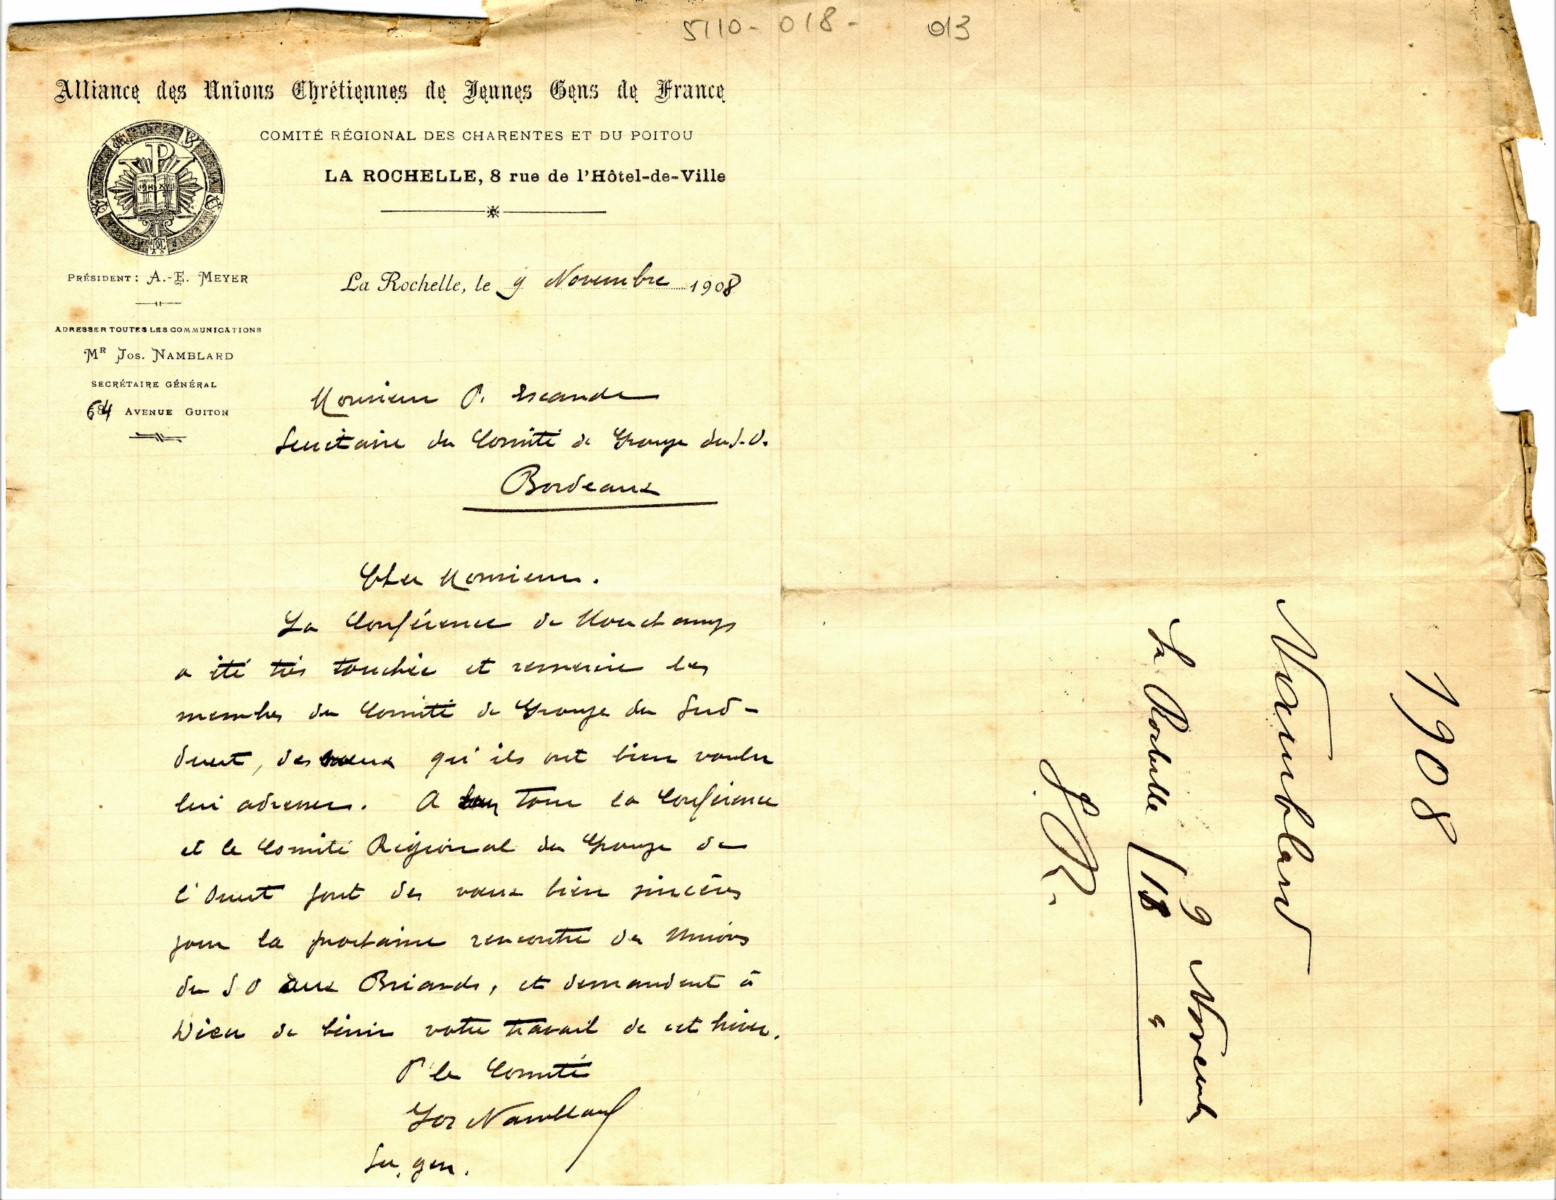 5110-018- 013
Alliance des Unions Chrétiennes de Jeunes Gens de France
COMITÉ RÉGIONAL DES CHARENTES ET DU POITOU
LA ROCHELLE, 8 rue de l'Hôtel-de-Ville
PRÉSIDENT: A.-E. MEYER
ADRESSER TOUTES LES COMMUNICATIONS
MR JOS. NAMBLARD
SECRÉTAIRE GÉNÉRAL
64 AVENUE GUITON
La Rochelle, le 9 Novembre 1908
Monsieur P. Escande
Secrétaire du Comité de Groupe du S.O.
Bordeaux
Cher Monsieur.
La Conférence de Mouchamps
a été très touchée et remercie les
membres du Comité de Groupe du Sud-
Ouest, des vœux qu'ils ont bien voulu
lui adresser. A son tour la Conférence
et le Comité Régional du Groupe de
l'Ouest font des vœux bien sincères
pour la prochaine rencontre des Unions
du SO aux Briands, et demandent à
Dieu de bénir votre travail de cet hiver.
Pr le Comité
Jos Namblard
Sec. gén.
1908
Namblard
La Rochelle 9 Novembre
18 "
S.R.